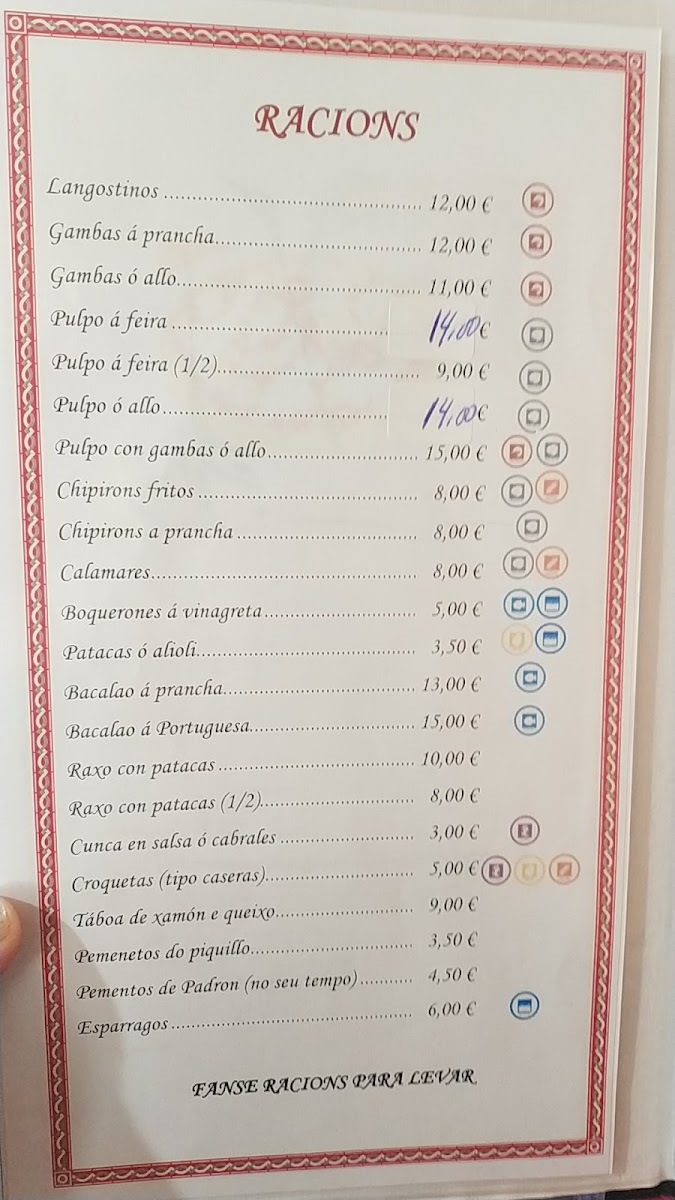 RACIONS
Langostinos ........................................... 12,00 €
Gambas á prancha................................... 12,00 €
Gambas ó allo.......................................... 11,00 €
Pulpo á feira ..................................... 14,00€
Pulpo á feira (1/2)................................... 9,00 €
Pulpo ó allo....................................... 14,00€
Pulpo con gambas ó allo.......................... 15,00 €
Chipirons fritos ...................................... 8,00 €
Chipirons a prancha ............................... 8,00 €
Calamares.............................................. 8,00 €
Boquerones á vinagreta.......................... 5,00 €
Patacas ó alioli...................................... 3,50 €
Bacalao á prancha................................. 13,00 €
Bacalao á Portuguesa............................ 15,00 €
Raxo con patacas ................................. 10,00 €
Raxo con patacas (1/2).......................... 8,00 €
Cunca en salsa ó cabrales ....................... 3,00 €
Croquetas (tipo caseras)......................... 5,00 €
Táboa de xamón e queixo....................... 9,00 €
Pemenetos do piquillo............................ 3,50 €
Pementos de Padron (no seu tempo) ........... 4,50 €
Esparragos ......................................... 6,00 €
FANSE RACIONS PARA LEVAR